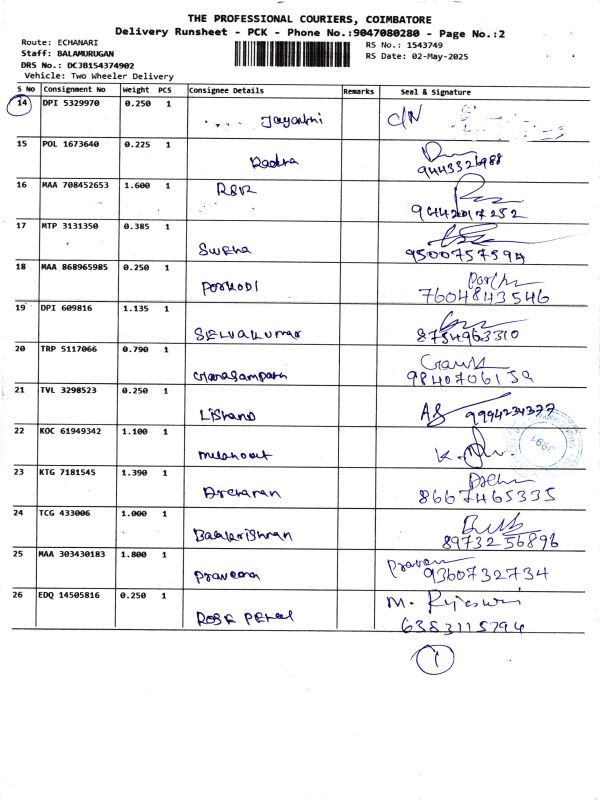 THE PROFESSIONAL COURIERS, COIMBATORE
Delivery Runsheet - PCK - Phone No.:9047080280 - Page No.:2
Route: ECHANARI RS No.: 1543749
Staff: BALAMURUGAN RS Date: 02-May-2025
DRS No.: DCJB154374902
Vehicle: Two Wheeler Delivery
S No Consignment No Weight PCS Consignee Details Remarks Seal & Signature
14 DPI 5329970 0.250 1
Jayanthi C/N
15 POL 1673640 0.225 1
Radha 9443326988
16 MAA 708452653 1.600 1 RSVR
9442017252
17 MTP 3131350 0.385 1
Suvetha 9500757594
18 MAA 868965985 0.250 1
Porkodi 7604843546
19 DPI 609816 1.135 1
Selvakumar 8754963310
20 TRP 5117066 0.790 1
Gnanasampath 9840706152
21 TVL 3298523 0.250 1
9994234377
22 KOC 61949342 1.100 1
23 KTG 7181545 1.390 1
8667465335
24 TCG 433006 1.000 1
Balakrishnan 8973256896
25 MAA 303430183 1.800 1
Praveena 9360732734
26 EDQ 14505816 0.250 1
Rose Petal 6383115794
1